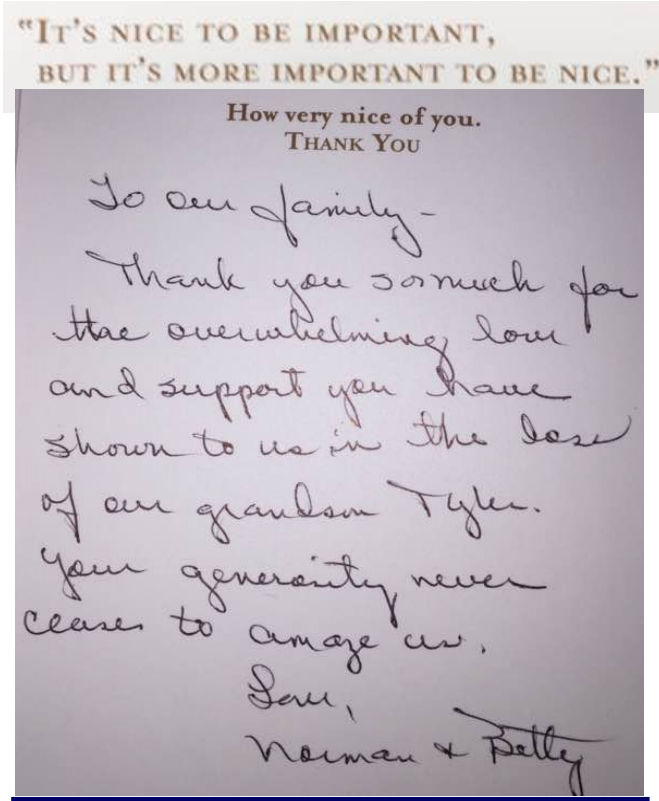 “IT’S NICE TO BE IMPORTANT,
BUT IT’S MORE IMPORTANT TO BE NICE.”
How very nice of you.
THANK YOU
To our family -
Thank you so much for
the overwhelming love
and support you have
shown to us in the loss
of our grandson Tyler.
Your generosity never
ceases to amaze us.
Love,
Norman & Betty